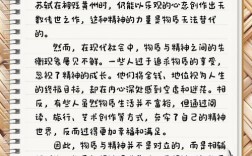 苏轼在被贬黄州时，仍能以乐观的心态创作出无
数传世之作，这种精神的力量是物质无法替代
的。
然而，在现代社会中，物质与精神之间的失
衡现象屡见不鲜。一些人过于追求物质的享受，
忽视了精神的成长。他们将金钱、地位视为人生
的终极目标，却在内心深处感到空虚和迷茫。相
反，有些人虽然物质生活并不富裕，但通过阅
读、旅行、艺术创作等方式，夯实了自己的精神
世界，反而活得更加幸福和满足。
因此，物质与精神并不是对立的，而是相辅